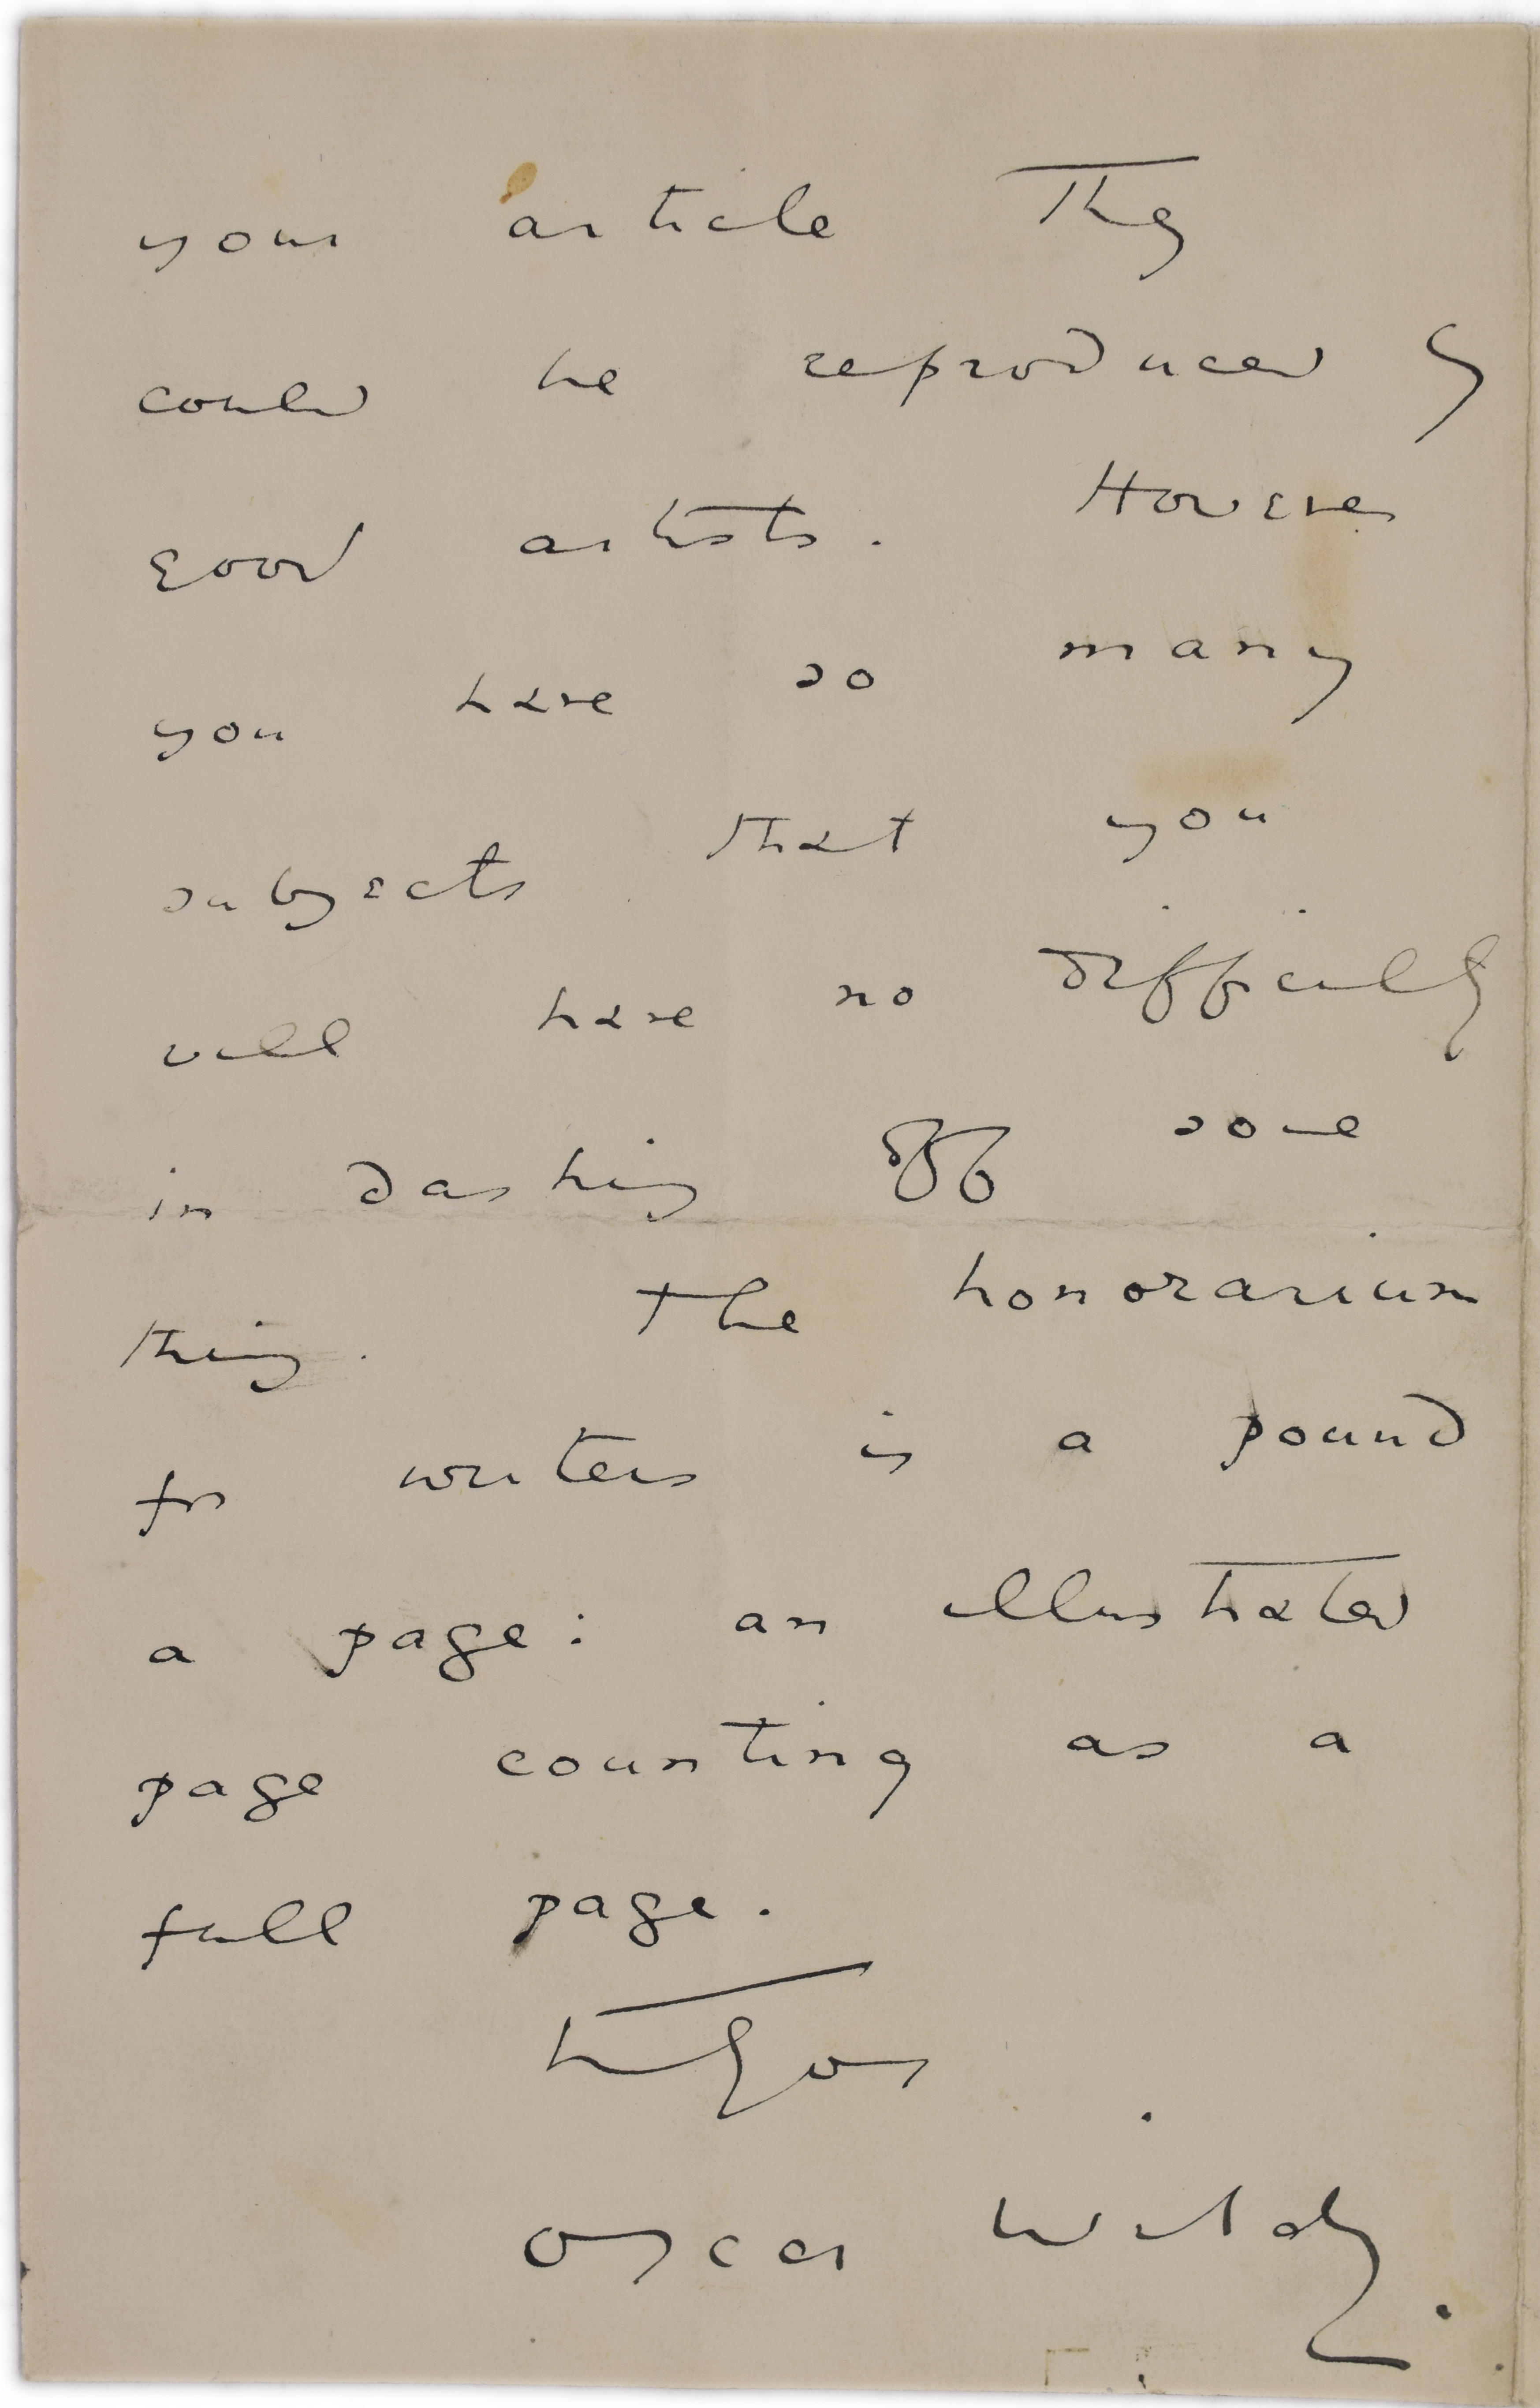 your article They
could be reproduced by
good artists. However
you have so many
subjects that you
will have no difficulty
in dashing off some
thing. The honorarium
for writers is a pound
a page: an illustrated
page counting as a
full page.
truly yours
Oscar Wilde.